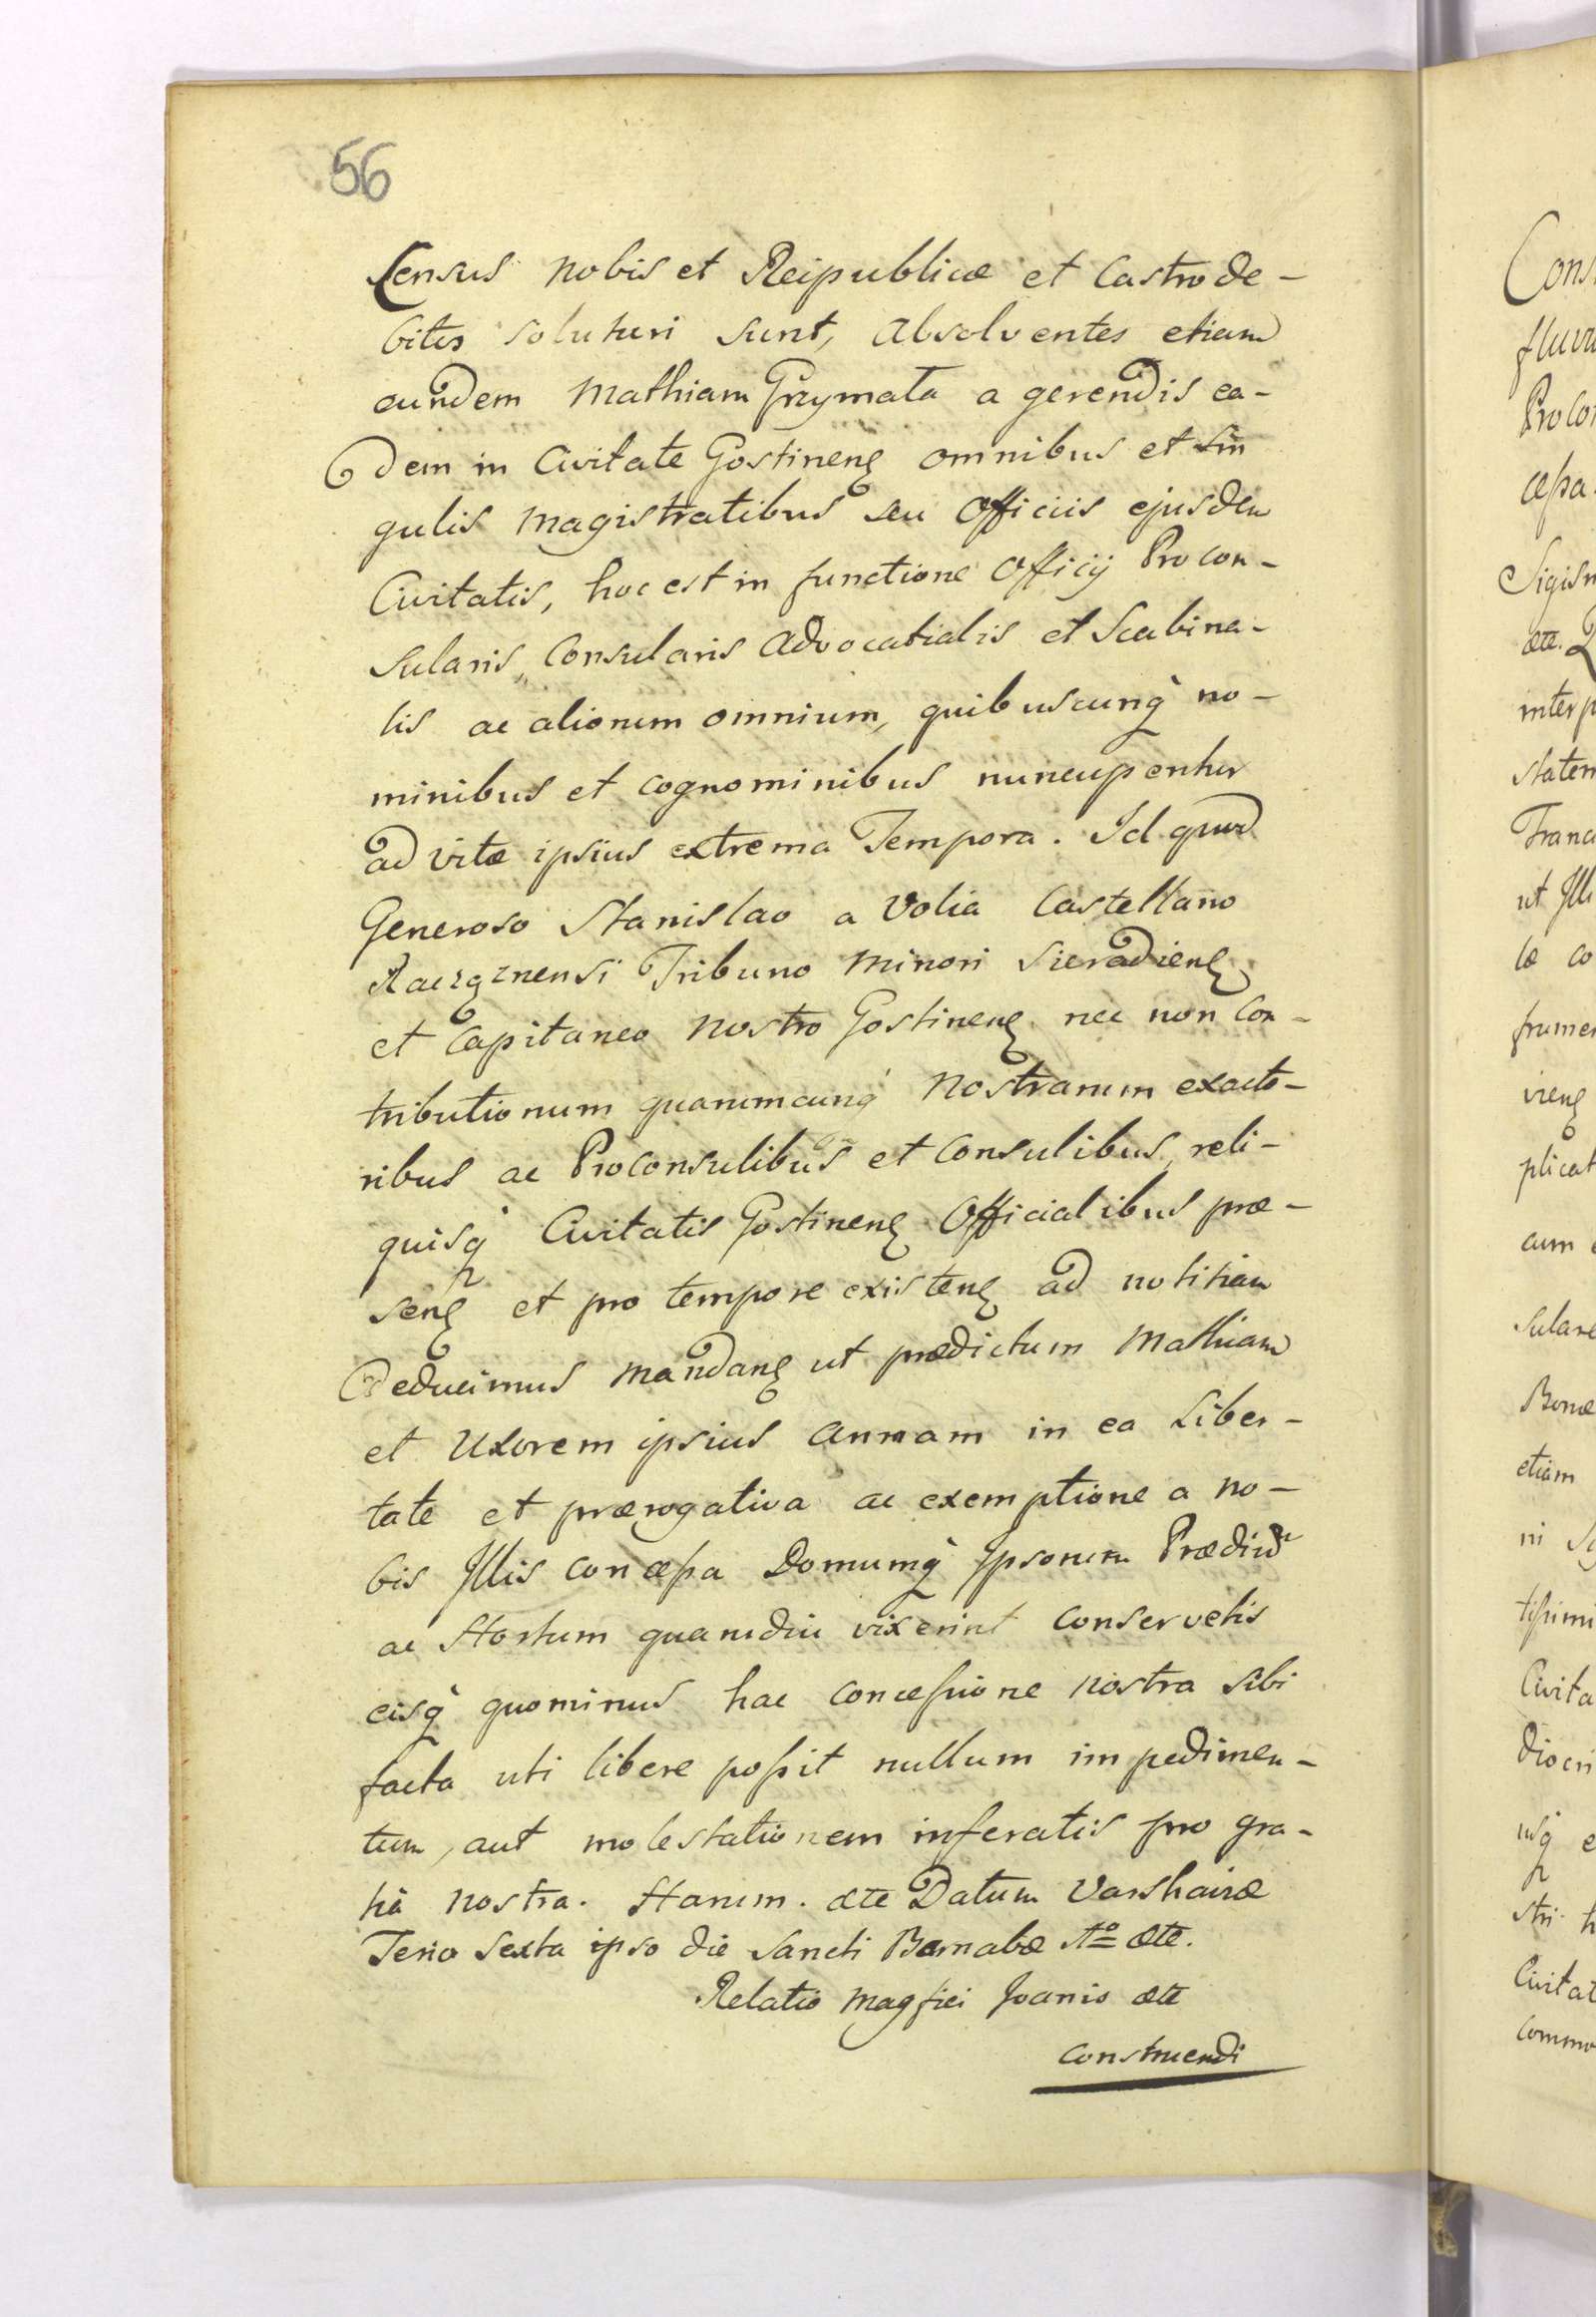 56
Census nobis et Reipublicæ et Castro de-
bitos soluturi sunt, absolventes etiam
eundem Mathiam Grzymała a gerendis ea-
dem in Civitate Gostinenß omnibus et sin
gulis magistratibus seu officiis ejusdem
Civitatis, hoc est in functione Officij Procon-
sularis, Consularis Advocatialis et Scabina-
lis ac aliorum omnium, quibuscunq no-
minibus et cognominibus nuncupentur
ad vitæ ipsius extrema Tempora. Id quod
Generoso Stanislao a Volia Castellano
Tribuno minori Sieradienß
et Capitaneo nostro Gostinenß nec non Con-
tributionum quarumcunq nostrarum exacto-
ribus ac Proconsulibus et Consulibus, reli-
quisq Civitatis Gostinenß Officialibus præ-
senß et pro tempore existenß ad notitiam
deducimus mandanß ut prædictum Mathiam
et Uxorem ipsius Annam in ea Liber-
tate et prærogativa ac exemptione a no-
bis Illis concessa Domumq Ipsorum Prædium
ac Hortum quamdiu vixerint conservetis
eisq quominus hac concessione nostra sibi
facta uti libere possit nullum impedimen-
tum, aut molestationem inferatis pro gra-
tia nostra. Harum. etc Datum Varshaviæ
Feria Sexta ipso die Sancti Barnabæ Aº etc.
Relatio Magfici Joanis etc
Construendi
Cons
fluvi
Proco
cessa
Sigism
etc.
inter
staten
Franc
ut Ill
læ co
frumen
vienß
plicat
cum
sulare
Bonæ
etiam
ni
tissimi
Civita
diocri
usq e
stri h
Civitat
commo